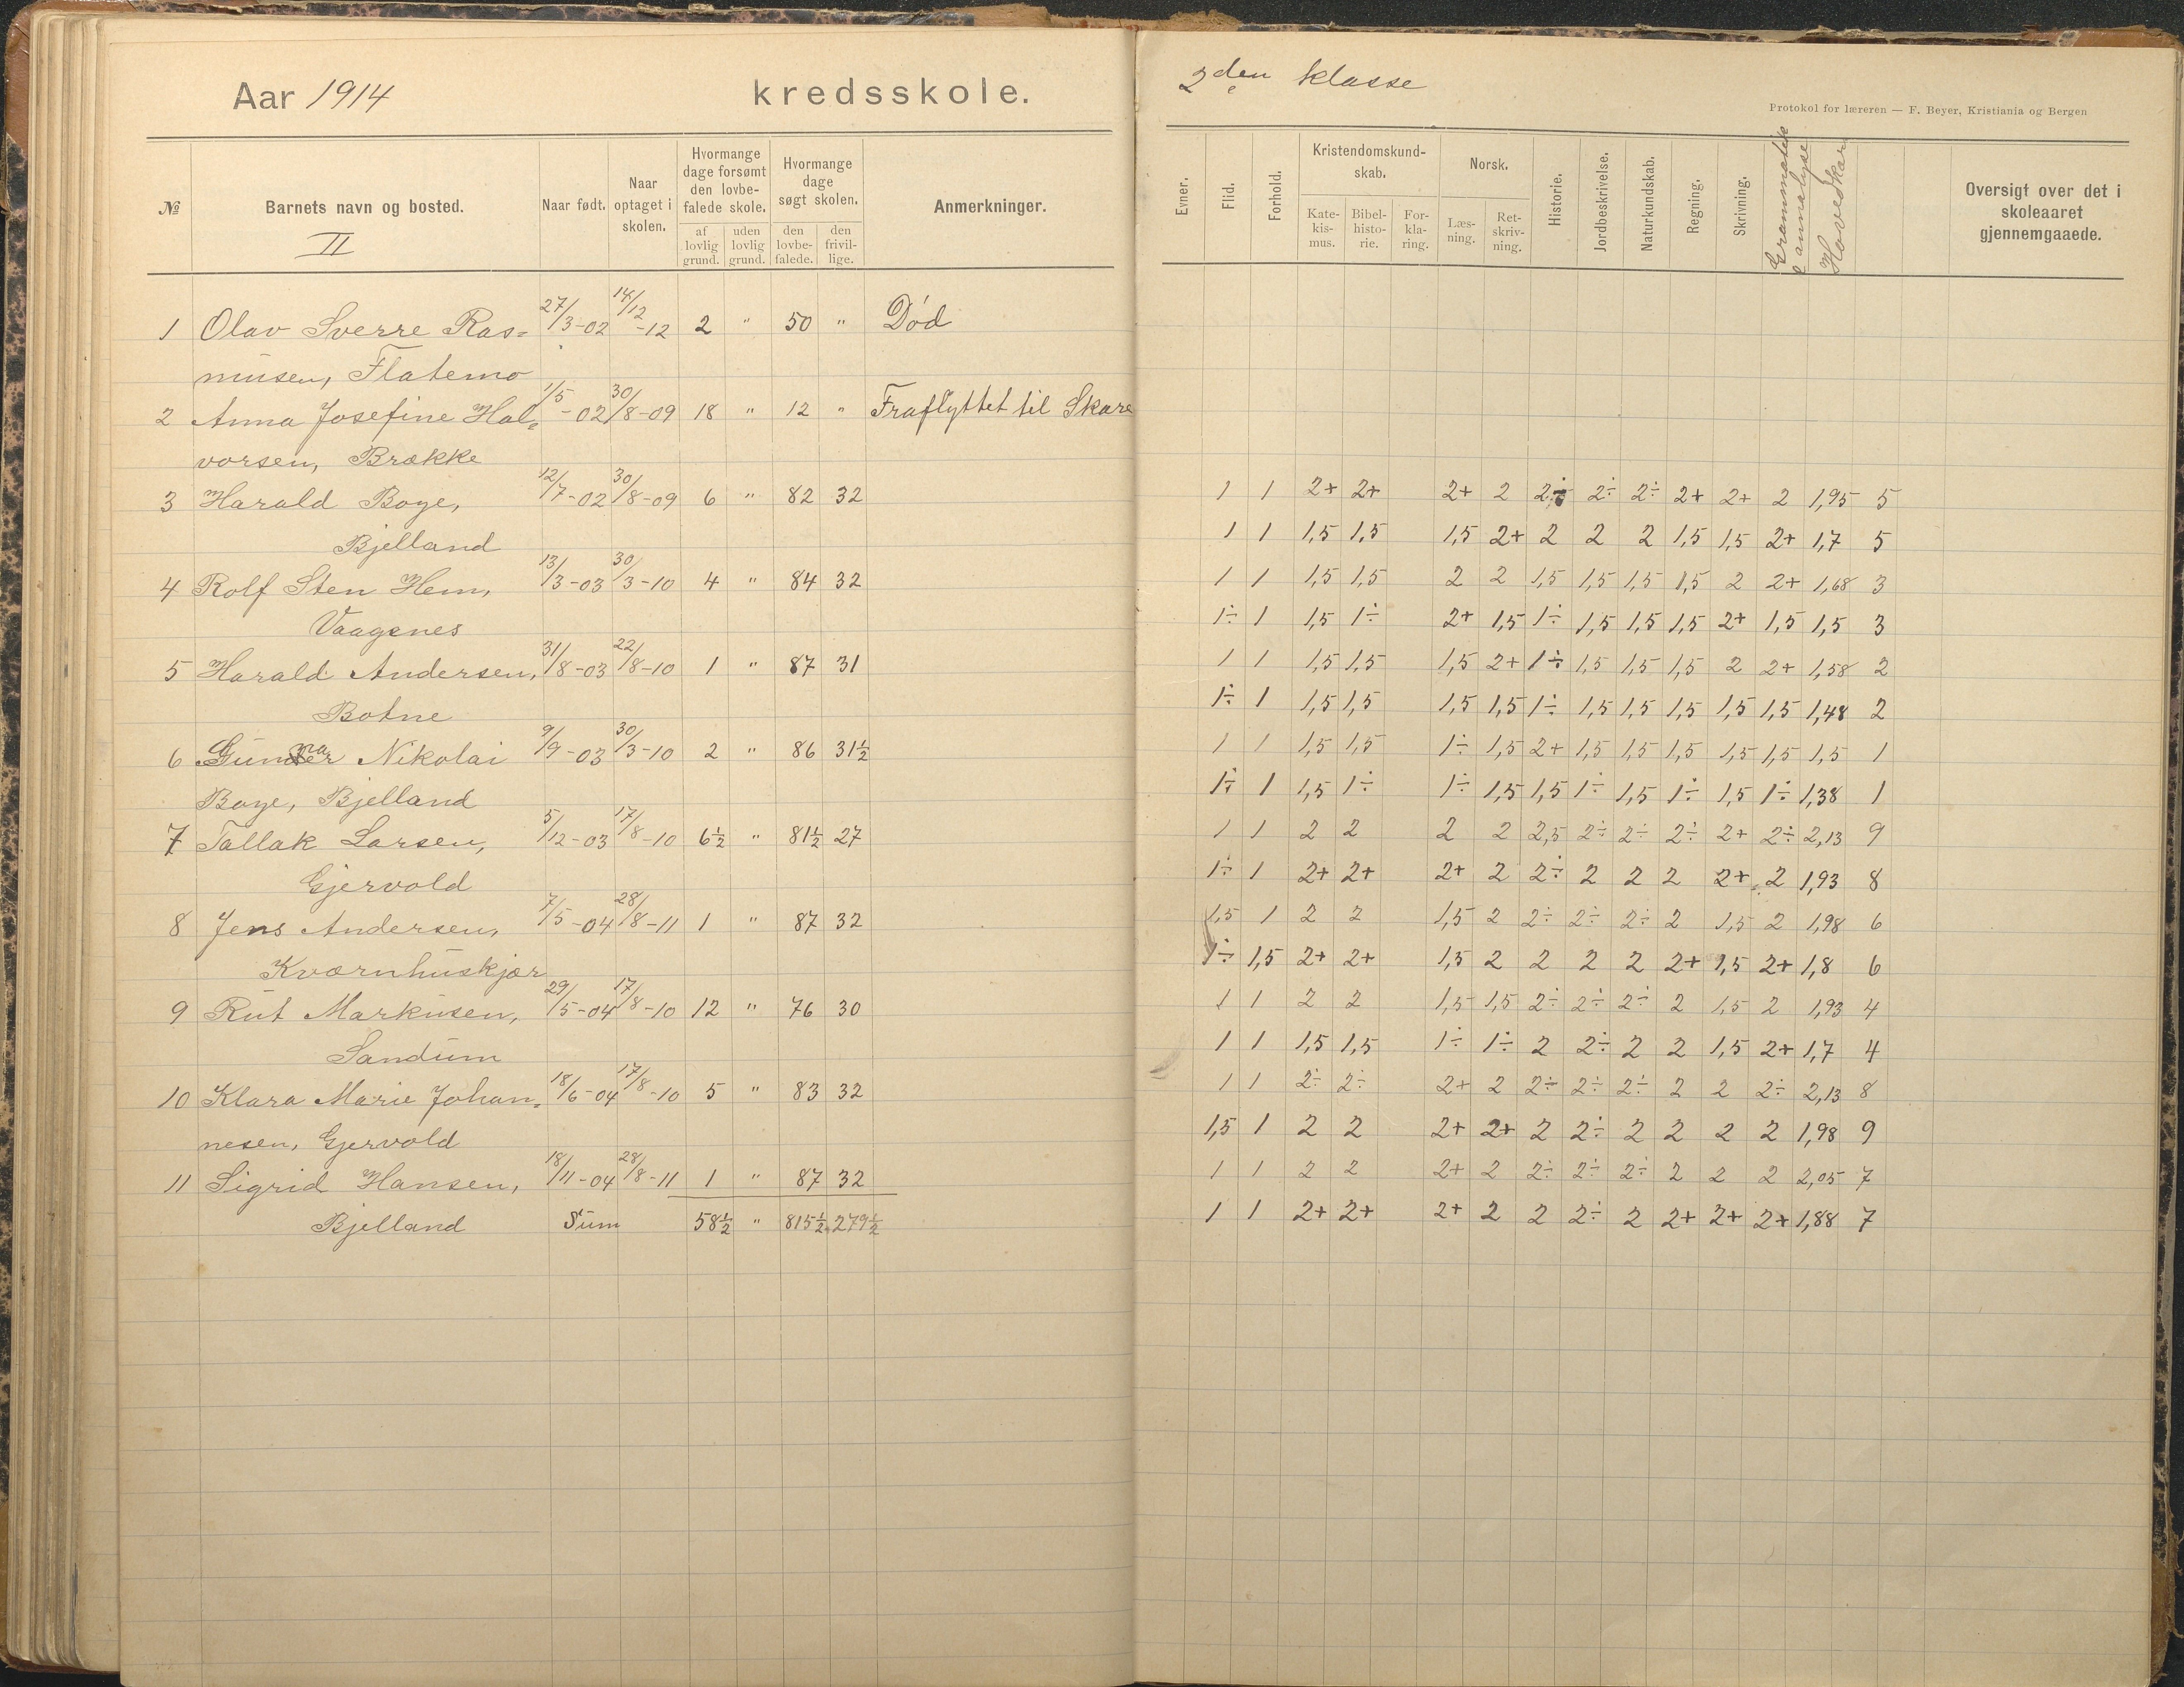 Aar 1914 kredsskole.
№ Barnets navn og bosted. Naar født. Naar optaget i skolen. Hvormange dage forsømt den lovbefalede skole. Hvormange dage søgt skolen. Anmerkninger.
af lovlig grund. uden lovlig grund. den lovbefalede. den frivillige.
II
1 Olav Sverre Ras= 27/3-02 14/12-12 2 " 50 " Död
musen, Flatemo
2 Anna Josefine Hal= 1/5-02 30/8-09 18 " 12 " Fraflyttet til Skare
vorsen, Brække
3 Harald Boye, 12/7-02 30/8-09 6 " 82 32
Bjelland
4 Rolf Sten Hem, 13/3-03 30/3-10 4 " 84 32
Vaagsnes
5 Harald Andersen, 31/8-03 22/8-10 1 " 87 31
Botne
6 Gunnar Nikolai 9/9-03 30/3-10 2 " 86 31½
Boye, Bjelland
7 Tallak Larsen, 5/12-03 17/8-10 6½ " 81½ 27
Gjervold
8 Jens Andersen, 7/5-04 28/8-11 1 " 87 32
Kværnhuskjær
9 Rut Markusen, 29/5-04 17/8-10 12 " 76 30
Sandum
10 Klara Marie Johan= 18/6-04 17/8-10 5 " 83 32
nesen, Gjervold
11 Sigrid Hansen, 18/11-04 28/8-11 1 " 87 32
Bjelland Sum 58½ " 815½ 279½
2den klasse
Protokol for læreren — F. Beyer, Kristiania og Bergen
Evner. Flid. Forhold. Kristendomskundskab. Norsk. Historie. Jordbeskrivelse. Naturkundskab. Regning. Skrivning. Grammatik & annalyse Hovedkar Oversigt over det i skoleaaret gjennemgaaede.
Katekismus. Bibelhistorie. Forklaring. Læsning. Retskrivning.
1 1 2+ 2+ 2+ 2 2÷ 2÷ 2÷ 2+ 2+ 2 1,95 5
1 1 1,5 1,5 1,5 2+ 2 2 2 1,5 1,5 2+ 1,7 5
1 1 1,5 1,5 2 2 1,5 1,5 1,5 1,5 2 2+ 1,68 3
1÷ 1 1,5 1÷ 2+ 1,5 1÷ 1,5 1,5 1,5 2+ 1,5 1,5 3
1 1 1,5 1,5 1,5 2+ 1÷ 1,5 1,5 1,5 2 2+ 1,58 2
1÷ 1 1,5 1,5 1,5 1,5 1÷ 1,5 1,5 1,5 1,5 1,5 1,48 2
1 1 1,5 1,5 1÷ 1,5 2+ 1,5 1,5 1,5 1,5 1,5 1,5 1
1÷ 1 1,5 1÷ 1÷ 1,5 1,5 1÷ 1,5 1÷ 1,5 1÷ 1,38 1
1 1 2 2 2 2 2,5 2÷ 2÷ 2÷ 2+ 2÷ 2,13 9
1÷ 1 2+ 2+ 2+ 2 2÷ 2 2 2 2+ 2 1,93 8
1,5 1 2 2 1,5 2 2÷ 2÷ 2÷ 2 1,5 2 1,98 6
1÷ 1,5 2+ 2+ 1,5 2 2 2 2 2+ 1,5 2+ 1,8 6
1 1 2 2 1,5 1,5 2÷ 2÷ 2÷ 2 1,5 2 1,93 4
1 1 1,5 1,5 1÷ 1÷ 2 2÷ 2 2 1,5 2+ 1,7 4
1 1 2÷ 2÷ 2+ 2 2÷ 2÷ 2÷ 2 2 2÷ 2,13 8
1,5 1 2 2 2+ 2+ 2 2÷ 2 2 2 2 1,98 9
1 1 2 2 2+ 2 2÷ 2÷ 2÷ 2 2 2 2,05 7
1 1 2+ 2+ 2+ 2 2 2÷ 2 2+ 2+ 2+ 1,88 7